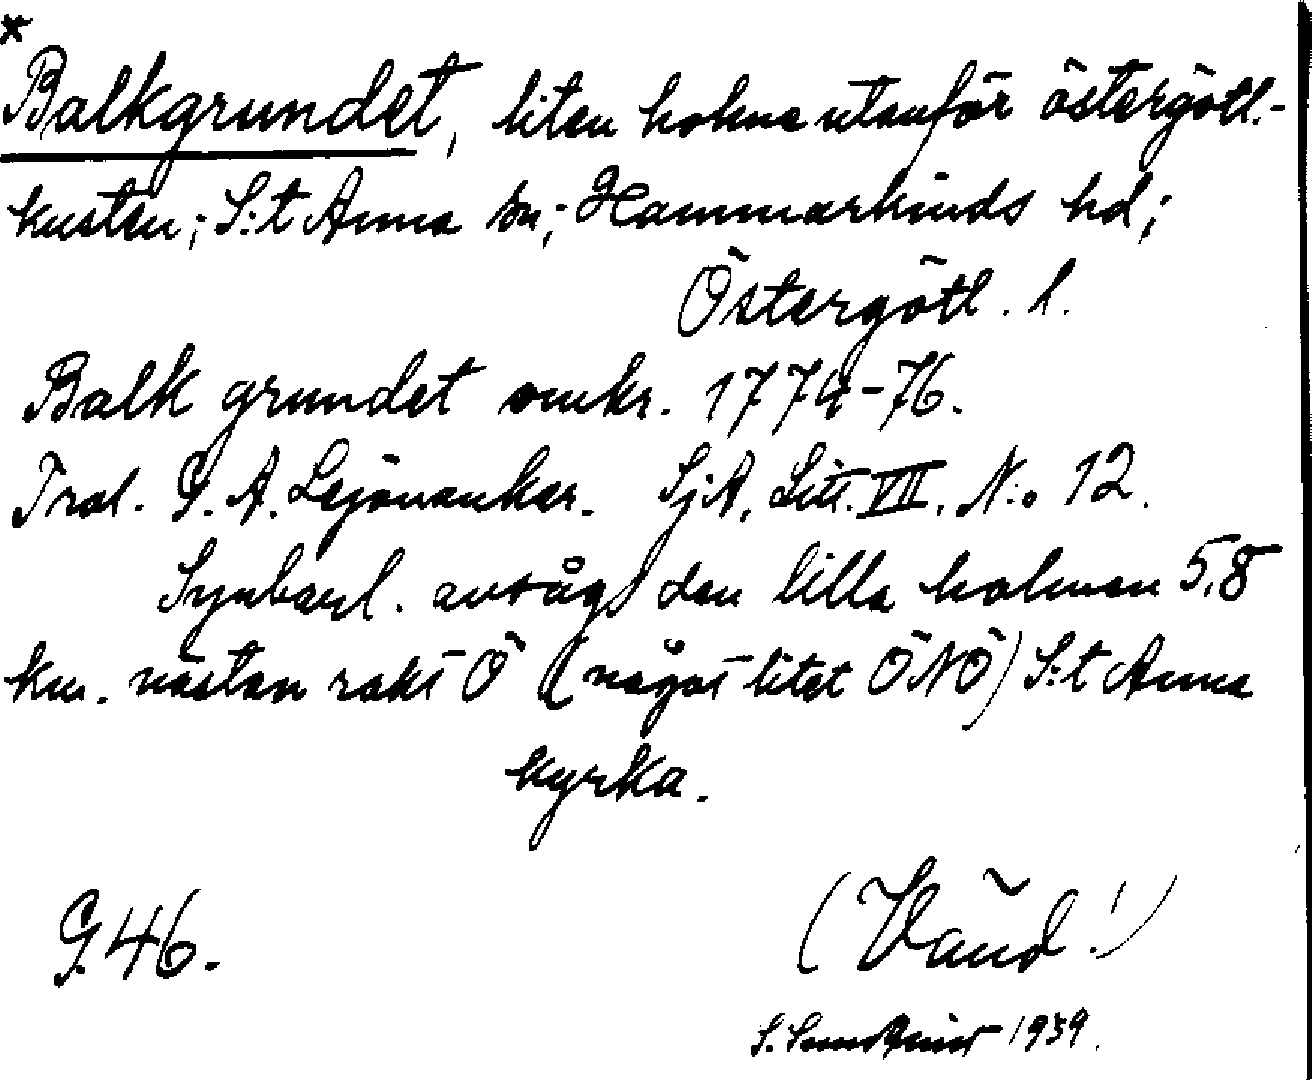 *
Balkgrundet, liten holme utanför östergötl.-
kusten; S:t Anna sn; Hammarkinds hd;
Östergötl. l.
Balk grundet omkr. 1774-76.
P. A. Lejonanker. SjA, Litt. VII. N:o 12.
Synbarl. avsågs den lilla holmen 5,8
km. nästan rakt Ö (något litet ÖNÖ) S:t Anna
kyrka.
G.46.
(Vänd!)
S. 1939.